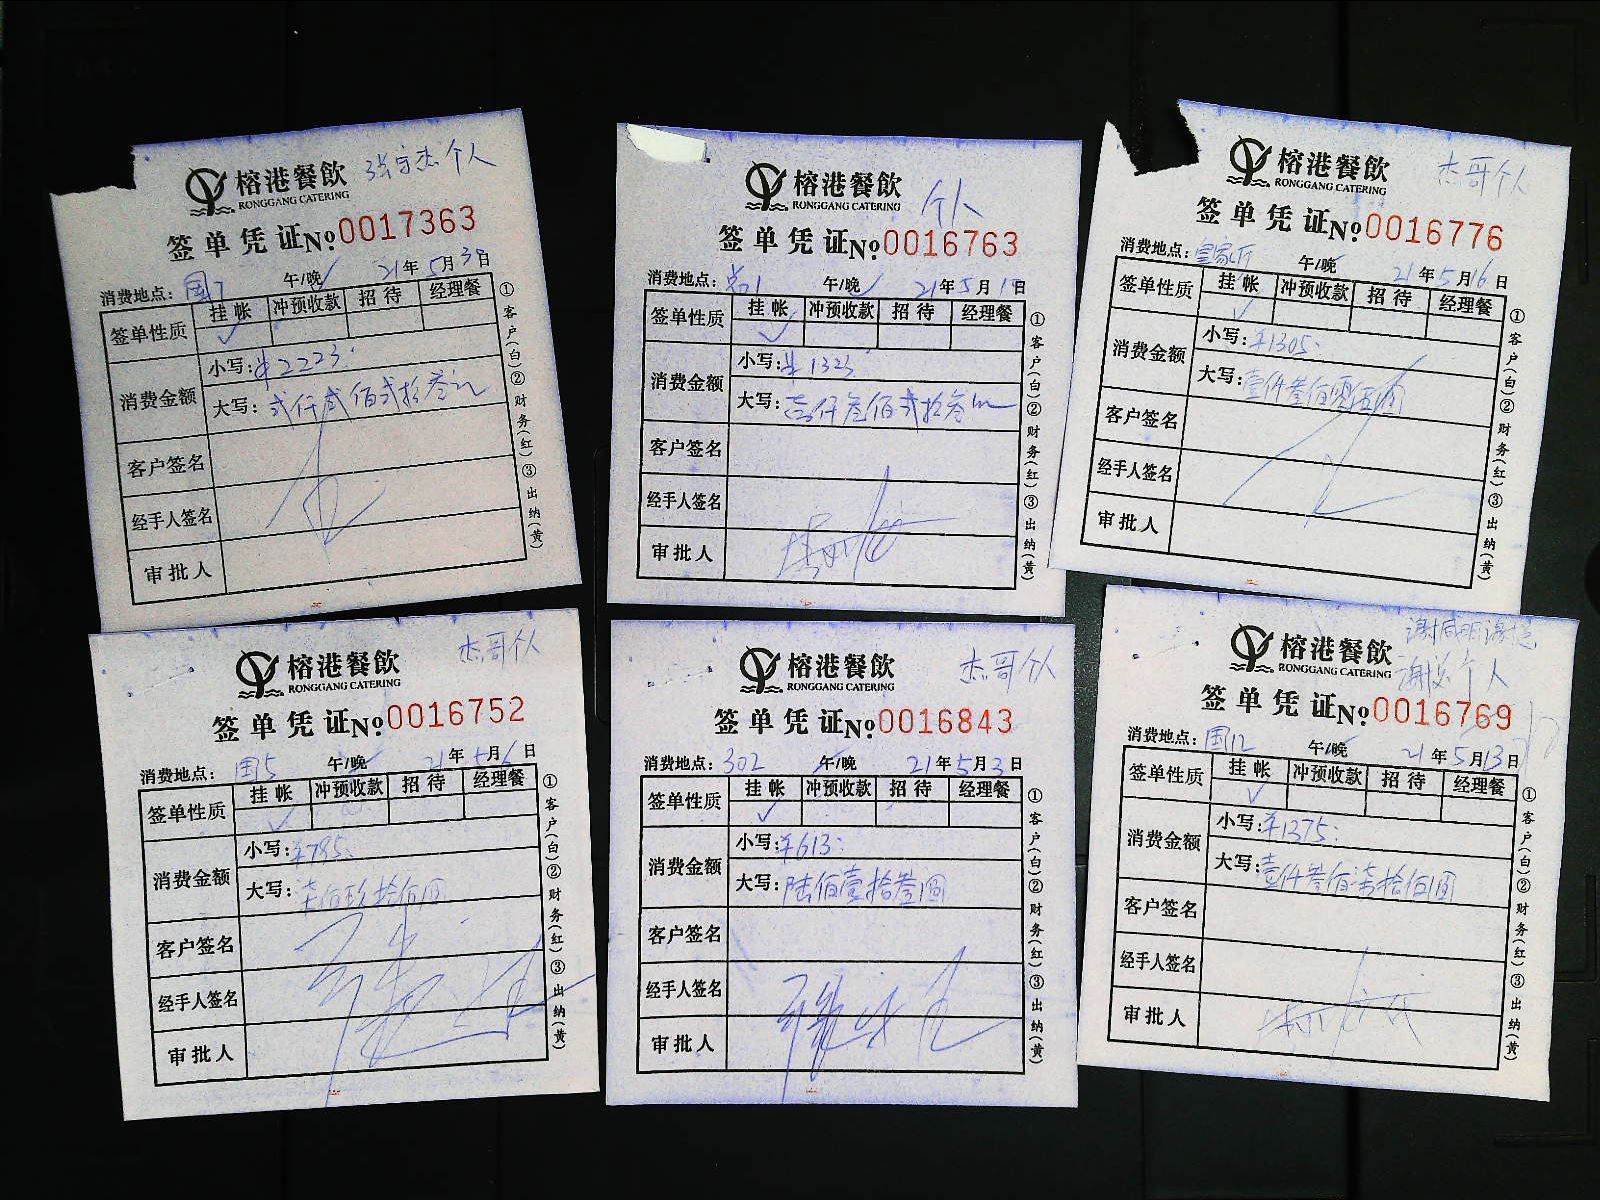 榕港餐飲 张宇杰个人
RONGGANG CATERING
签单凭证 No 0017363
消费地点: 国7 午/晚 21年5月30日
签单性质 挂帐 冲预收款 招待 经理餐
消费金额 小写: ¥2223
大写: 弍仟弍佰弍拾叁元
客户签名
经手人签名
审批人
①客户(白)②财务(红)③出纳(黄)
榕港餐飲 个人
RONGGANG CATERING
签单凭证 No 0016763
消费地点: 午/晚 21年5月1日
签单性质 挂帐 冲预收款 招待 经理餐
消费金额 小写: ¥1323
大写: 壹仟叁佰弍拾叁元
客户签名
经手人签名
审批人
①客户(白)②财务(红)③出纳(黄)
榕港餐飲 杰哥个人
RONGGANG CATERING
签单凭证 No 0016776
消费地点: 皇家厅 午/晚 21年5月16日
签单性质 挂帐 冲预收款 招待 经理餐
消费金额 小写: ¥1305
大写: 壹仟叁佰零伍圆
客户签名
经手人签名
审批人
①客户(白)②财务(红)③出纳(黄)
榕港餐飲 杰哥个人
RONGGANG CATERING
签单凭证 No 0016752
消费地点: 国5 午/晚 21年5月6日
签单性质 挂帐 冲预收款 招待 经理餐
消费金额 小写: ¥795
大写: 柒佰玖拾伍圆
客户签名
经手人签名
审批人
①客户(白)②财务(红)③出纳(黄)
榕港餐飲 杰哥个人
RONGGANG CATERING
签单凭证 No 0016843
消费地点: 302 午/晚 21年5月3日
签单性质 挂帐 冲预收款 招待 经理餐
消费金额 小写: ¥613
大写: 陆佰壹拾叁圆
客户签名
经手人签名
审批人
①客户(白)②财务(红)③出纳(黄)
榕港餐飲 个人
RONGGANG CATERING
签单凭证 No 0016769
消费地点: 国12 午/晚 21年5月13日
签单性质 挂帐 冲预收款 招待 经理餐
消费金额 小写: ¥1375
大写: 壹仟叁佰柒拾伍圆
客户签名
经手人签名
审批人
①客户(白)②财务(红)③出纳(黄)